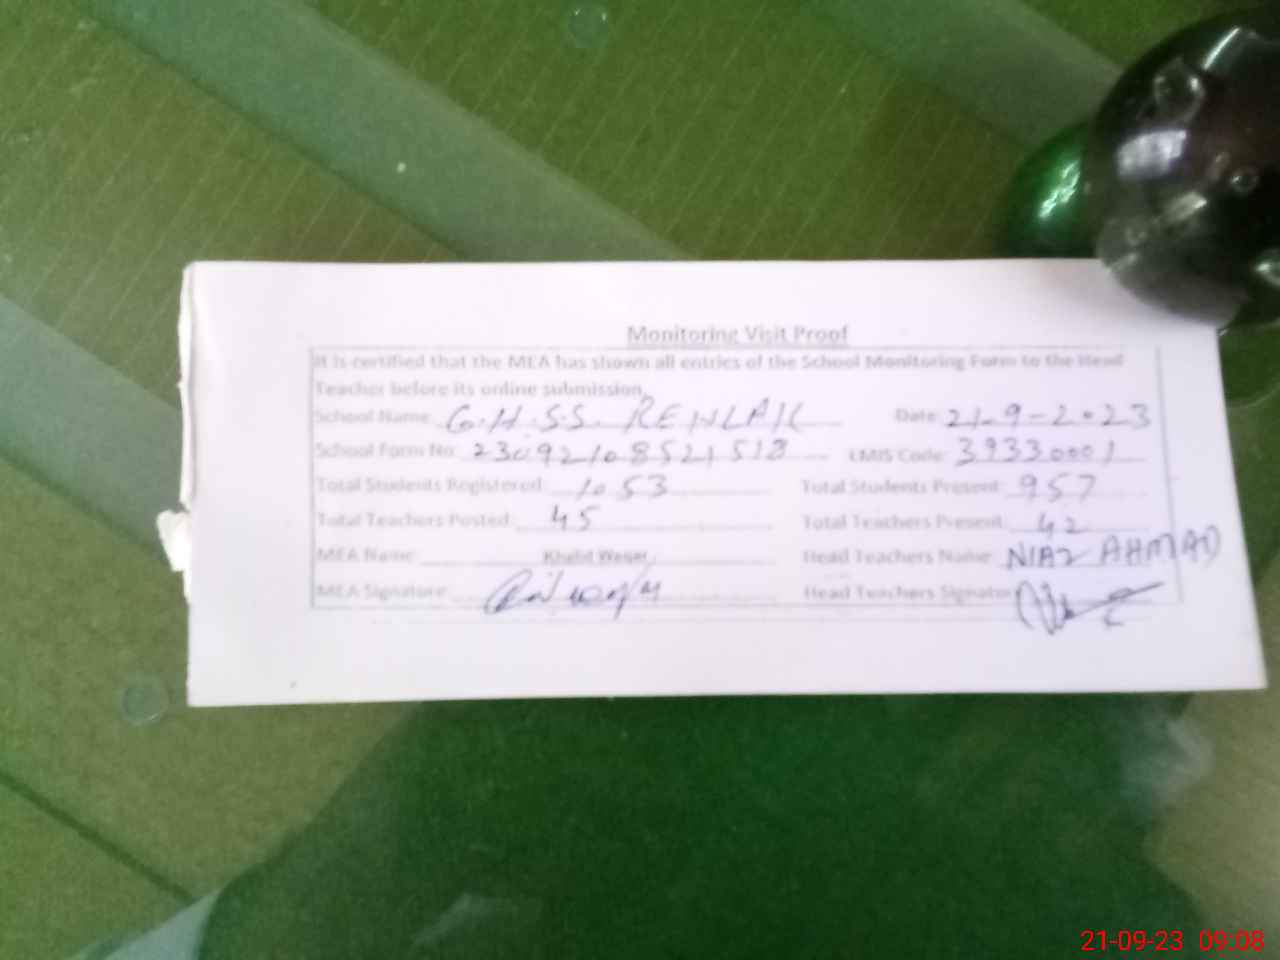 Monitoring Visit Proof
It is certified that the MEA has shown all entries of the School Monitoring Form to the Head
Teacher before its online submission.
School Name: G.H.S.S. RENLAIL Date: 21-9-2023
School Form No: LMIS Code: 39330001
Total Students Registered: 1053 Total Students Present: 957
Total Teachers Posted: 45 Total Teachers Present: 42
MEA Name: Head Teachers Name: NIAZ AHMAD
MEA Signature: Head Teachers Signature
21-09-23 09:08